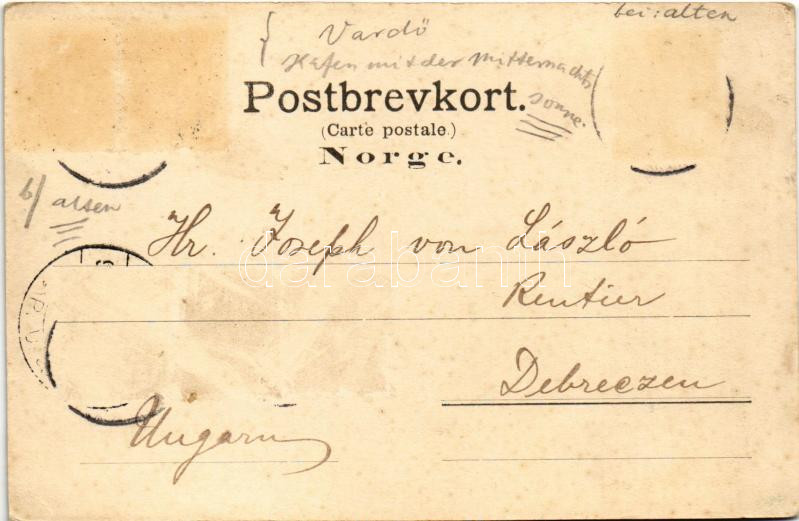 bei: alten
Vardö
Hafen mit der Mitternachts
sonne.
Postbrevkort.
(Carte postale.)
Norge.
b/ alten
Hr. Joseph von László
darabanth
Rentier
Debreczen
Ungarn